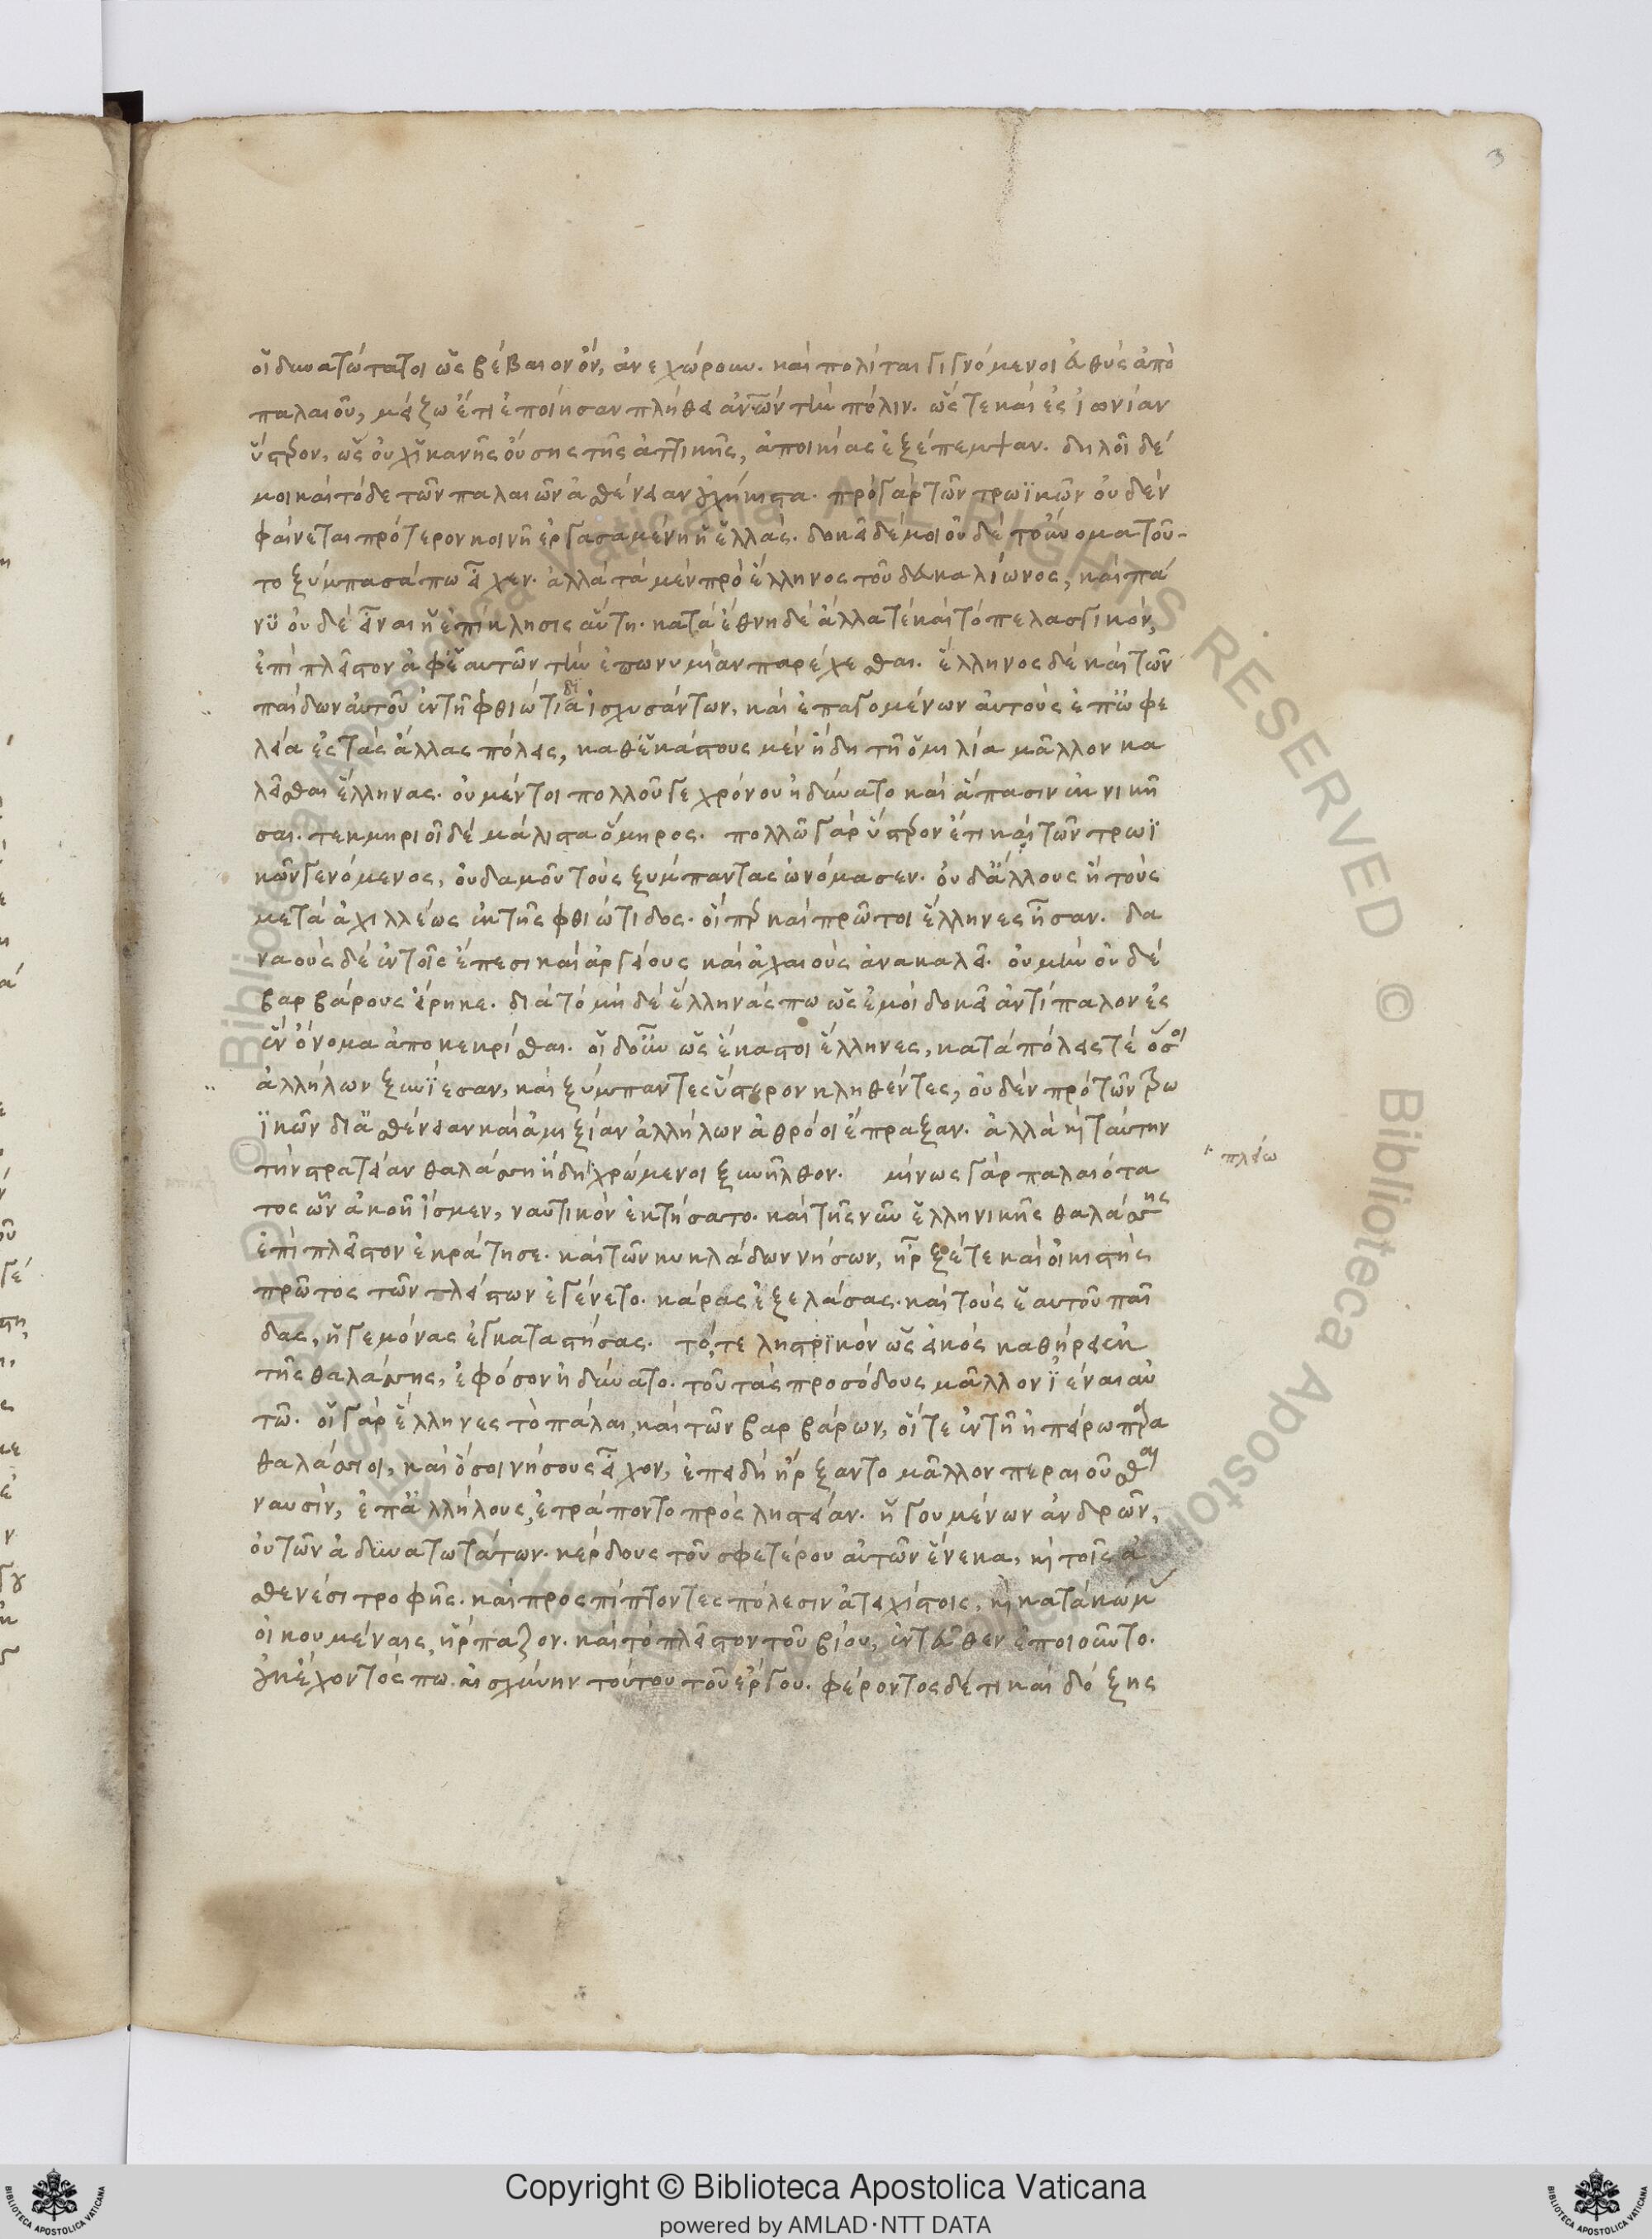 3
οἱ δυνατώτατοι ὡς βέβαιον ὂν, ἀνεχώρουν. καὶ πολῖται γιγνόμενοι εὐθὺς ἀπὸ
παλαιοῦ, μείζω ἔτι ἐποίησαν πλήθει ἀνων τὴν πόλιν. ὥστε καὶ ἐς ἰωνίαν
ὕστερον, ὡς οὐχ ἱκανῆς οὔσης τῆς ἀττικῆς, ἀποικίας ἐξέπεμψαν. δηλοῖ δέ
μοι καὶ τόδε τῶν παλαιῶν ἀσθένειαν οὐχ ἥκιστα. πρὸ γὰρ τῶν τρωϊκῶν οὐδὲν
φαίνεται πρότερον κοινῆ ἐργασαμένη ἡ ἑλλάς. δοκεῖ δέ μοι οὐδὲ τοὔνομα τοῦ-
το ξύμπασά πω εἶχεν. ἀλλὰ τὰ μὲν πρὸ ἕλληνος τοῦ δευκαλίωνος, καὶ πά
νυ οὐδὲ εἶναι ἡ ἐπίκλησις αὕτη. κατὰ ἔθνη δὲ ἄλλα τὲ καὶ τὸ πελασγικὸν,
ἐπὶ πλεῖστον ἀφ' ἑαυτῶν τὴν ἐπωνυμίαν παρέχεσθαι. ἕλληνος δὲ καὶ τῶν
παίδων αὐτοῦ ἐν τῆ φθιώτιδι ἰσχυσάντων, καὶ ἐπαγομένων αὐτοὺς ἐπ' ὠφε
λεία ἐς τὰς ἄλλας πόλεις, καθ' ἑκάστους μὲν ἤδη τῆ ὁμιλία μᾶλλον κα
λεῖσθαι ἕλληνας. οὐ μέντοι πολλοῦ γε χρόνου ἠδύνατο καὶ ἅπασιν ἐκνικῆ
σαι. τεκμηριοῖ δὲ μάλιστα ὅμηρος. πολλῶ γὰρ ὕστερον ἔτι καὶ τῶν τρωϊ
κῶν γενόμενος, οὐδαμοῦ τοὺς ξύμπαντας ὠνόμασεν. οὐδ' ἄλλους ἢ τοὺς
μετὰ ἀχιλλέως ἐκ τῆς φθιώτιδος. οἵπερ καὶ πρῶτοι ἕλληνες ἦσαν. δα
ναοὺς δὲ ἐν τοῖς ἔπεσι καὶ ἀργείους καὶ ἀχαιοὺς ἀνακαλεῖ. οὐ μὴν οὐδὲ
βαρβάρους εἴρηκε. διὰ τὸ μηδὲ ἕλληνάς πω ὡς ἐμοὶ δοκεῖ ἀντίπαλον ἐς
ἓν ὄνομα ἀποκεκρίσθαι. οἱ δ' οὖν ὡς ἕκαστοι ἕλληνες, κατὰ πόλεις τὲ ὅσοι
ἀλλήλων ξυνίεσαν, καὶ ξύμπαντες ὕστερον κληθέντες, οὐδὲν πρὸ τῶν τρω
ϊκῶν δι' ἀσθένειαν καὶ ἀμιξίαν ἀλλήλων ἀθρόοι ἔπραξαν. ἀλλὰ καὶ ταύτην
τὴν στρατείαν θαλάσση ἤδη χρώμενοι ξυνῆλθον. μίνως γὰρ παλαιότα
πλείω
τος ὧν ἀκοῆ ἴσμεν, ναυτικὸν ἐκτήσατο. καὶ τῆς νῦν ἑλληνικῆς θαλάσσης
ἐπὶ πλεῖστον ἐκράτησε. καὶ τῶν κυκλάδων νήσων, ἦρξέ τε καὶ οἰκιστὴς
πρῶτος τῶν πλείστων ἐγένετο. κάρας ἐξελάσας. καὶ τοὺς ἑαυτοῦ παῖ
δας, ἡγεμόνας ἐγκαταστήσας. τό, τε ληστρϊκὸν ὡς εἰκὸς καθήρει ἐκ
τῆς θαλάσσης, ἐφόσον ἠδύνατο. τοῦ τὰς προσόδους μᾶλλον ϊέναι αὐ
τῶ. οἱ γὰρ ἕλληνες τὸ πάλαι, καὶ τῶν βαρβάρων, οἵ τε ἐν τῆ ἠπείρω παρα
θαλάσσιοι, καὶ ὅσοι νήσους εἶχον, ἐπειδὴ ἤρξαντο μᾶλλον περαιοῦσθαι
ναυσὶν, ἐπ' ἀλλήλους, ἐτράποντο πρὸς ληστείαν. ἡγουμένων ἀνδρῶν,
οὐ τῶν ἀδυνατωτάτων. κέρδους τοῦ σφετέρου αὐτῶν ἕνεκα, καὶ τοῖς ἀ
σθενέσι τροφῆς. καὶ προσπίπτοντες πόλεσιν ἀτειχίστοις, καὶ κατὰ κώμας
οἰκουμέναις, ἥρπαζον. καὶ τὸ πλεῖστον τοῦ βίου, ἐντεῦθεν ἐποιοῦντο.
οὐκ ἔχοντός πω αἰσχύνην τούτου τοῦ ἔργου. φέροντος δέ τι καὶ δόξης
Copyright © Biblioteca Apostolica Vaticana
powered by AMLAD·NTT DATA